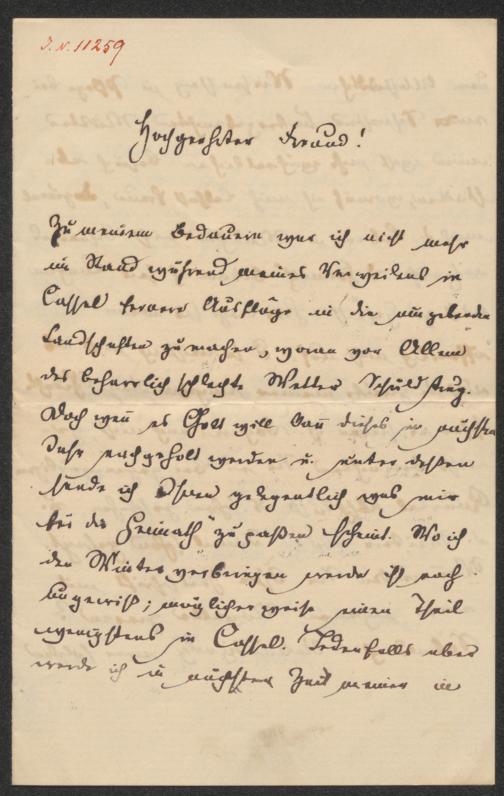 J.N. 11259
Hochgeehrter Freund!
Zu meinem Bedauern war ich nicht mehr
im Stand während meines Verweilens in
Cassel fernere Ausflüge in die umgebenden
Landschaften zu machen, woran vor Allem
das beharrlich schlechte Wetter Schuld trug.
Doch wenn es Gott will kann dieses im nächsten
Jahr nachgeholt werden u. unter dessen
sende ich Ihnen gelegentlich was mir
für die „Heimath" zu paßen scheint. Wo ich
den Winter verbringen werde ist noch
ungewiß; möglicherweise einen Theil
wenigstens in Cassel. Jedenfalls aber
werde ich in nächster Zeit meine in